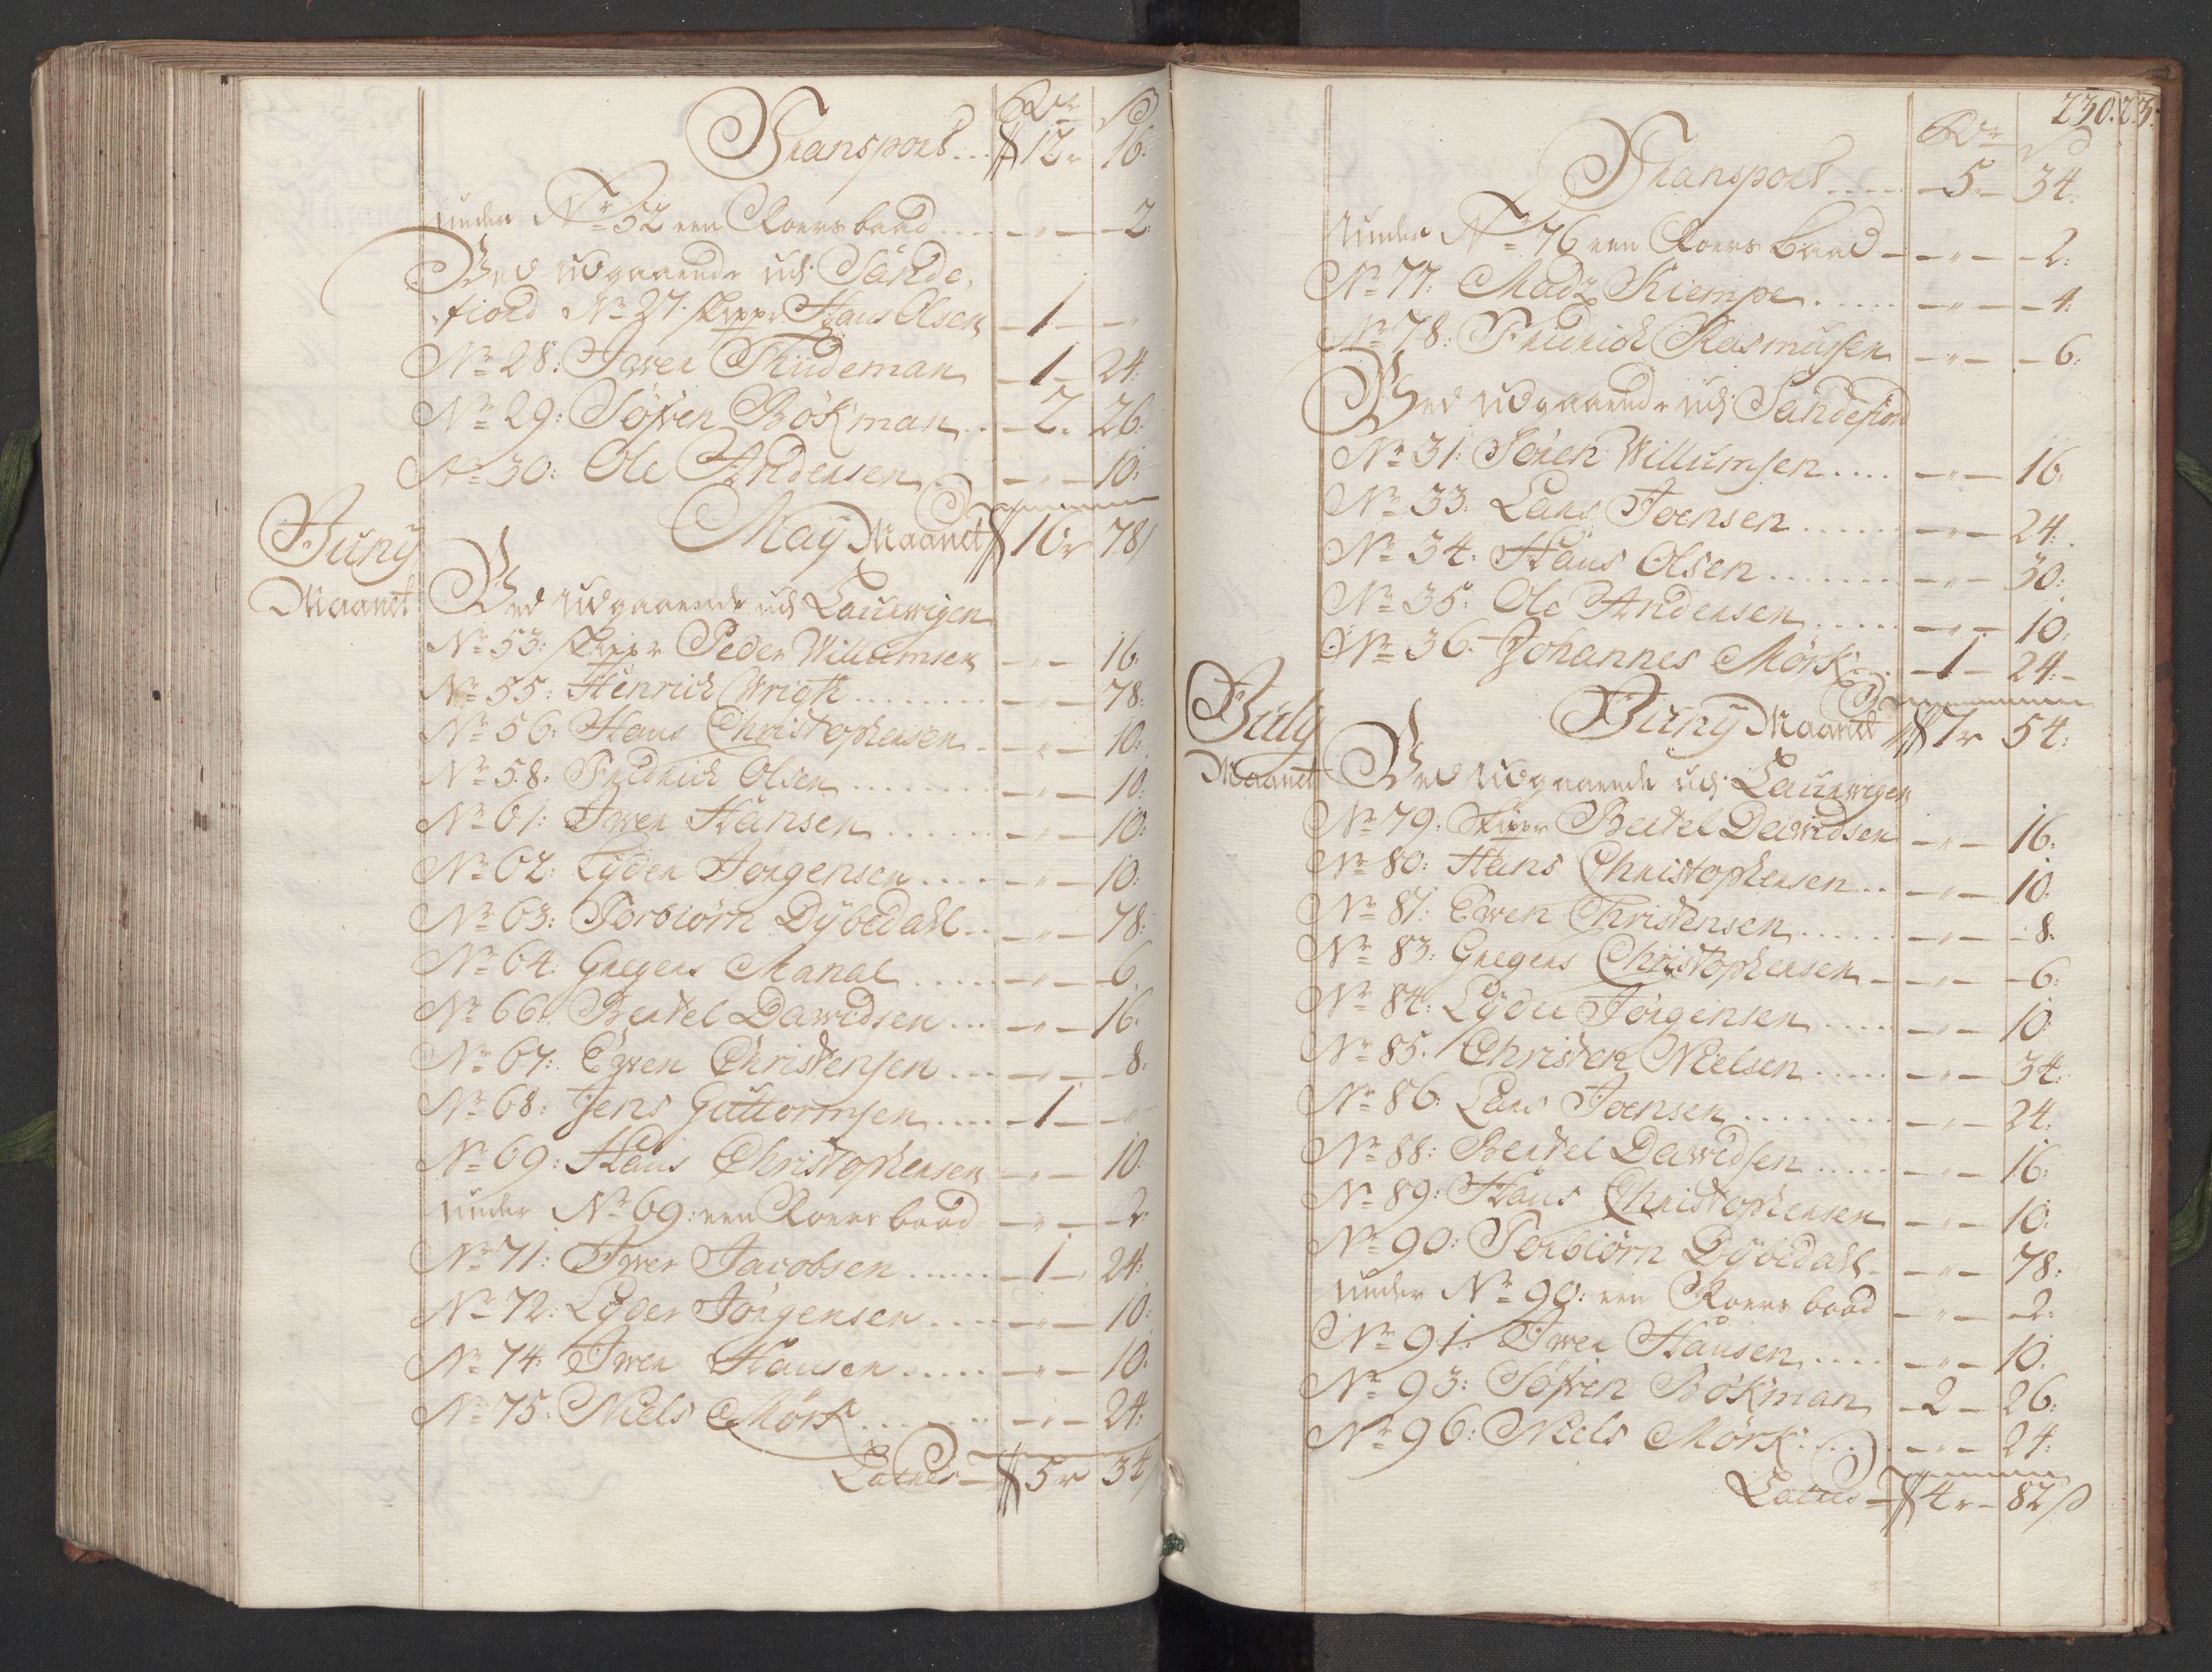 Rdr ß
Transport... 12 r 16:
under No 52 een Roers baad.... - " - - 2:
Ved udgaaende udj Sande,
fiord No 27: skippr Hans Olsen - 1 - "
No 28: Iwer Thudeman - 1 - 24:
No 29: Søfren Bökman.. - 2. 26:
No 30: Ole Andersen - " - 10:
May Maanet 16 r 78 ß
Juny
Maanet
Ved udgaaende udj Laurwigen
No 53: skippr Peder Willumsen - " - 16.
No 55: Henrich Wrigh........ - " - 78:
No 56: Hans Christophersen. - " - 10:
No 58: Fridrich Olsen........ - " - 10:
No 61: Iwer Hansen...... - " - 10:
No 62: Lyder Jörgensen.... - " - 10:
No 63: Torbiörn Dybedahl.. - " - 78:
No 64: Gregers Manal..... - " - 6.
No 66: Bertel Dawidsen... - " - 16:
No 67: Ewen Christensen... - " - - 8.
No 68: Jens Guttormsen.... - 1 - - "
No 69: Hans Christophersen - " - 10.
under No 69: een Roers baad - " - - 2:
No 71: Iwer Jacobsen...... - 1 - 24:
No 72: Lyder Jörgensen.... - " - 10:
No 74: Iwer Hansen..... - " - 10:
No 75: Niels Mörk....... - " - 24:
Latus - 5 r 34 ß
230. 23:
Rdr ß
Transport..... - 5 - 34.
Under No 76 een Roers Baad - - " - - 2:
No 77: Madz Kiempe..... - " - - 4:
No 78: Fridrich Rasmussen - " - - 6:
Ved udgaaende udj Sandefiord
No 31: Sören Willumsen.... - " - 16.
No 33: Lars Joensen...... - " - 24:
No 34: Hans Olsen....... - " - 30:
No 35: Ole Andersen..... - " - 10:
No 36: Johannes Mörk.. - 1 - 24:-
Juny Maanet 7 r 54:
July
Maanet
Ved udgaaende udj Laurwigen
No 79: Skippr Bertel Dawidsen - " - 16:
No 80: Hans Christophersen.. - " - 10:
No 81: Ewen Christensen...... - " - - 8.
No 83: Gregers Christophersen - - " - - 6:
No 84: Lyder Jörgensen..... - " - 10:
No 85: Christen Nielsen..... - " - 34:
No 86: Lars Joensen........ - " - 24:
No 88: Bertel Dawidsen..... - " - 16:
No 89: Hans Christophersen - " - 10:
No 90: Torbiörn Dybedahl - - " - 78:
under No 90: een Roers baad - " - - 2:
No 91: Iwer Hansen.... - " - 10:
No 93: Søfren Bökman - 2 - 26:
No 96: Niels Mörk..... - " - 24:
Latus - 4 r - 82 ß